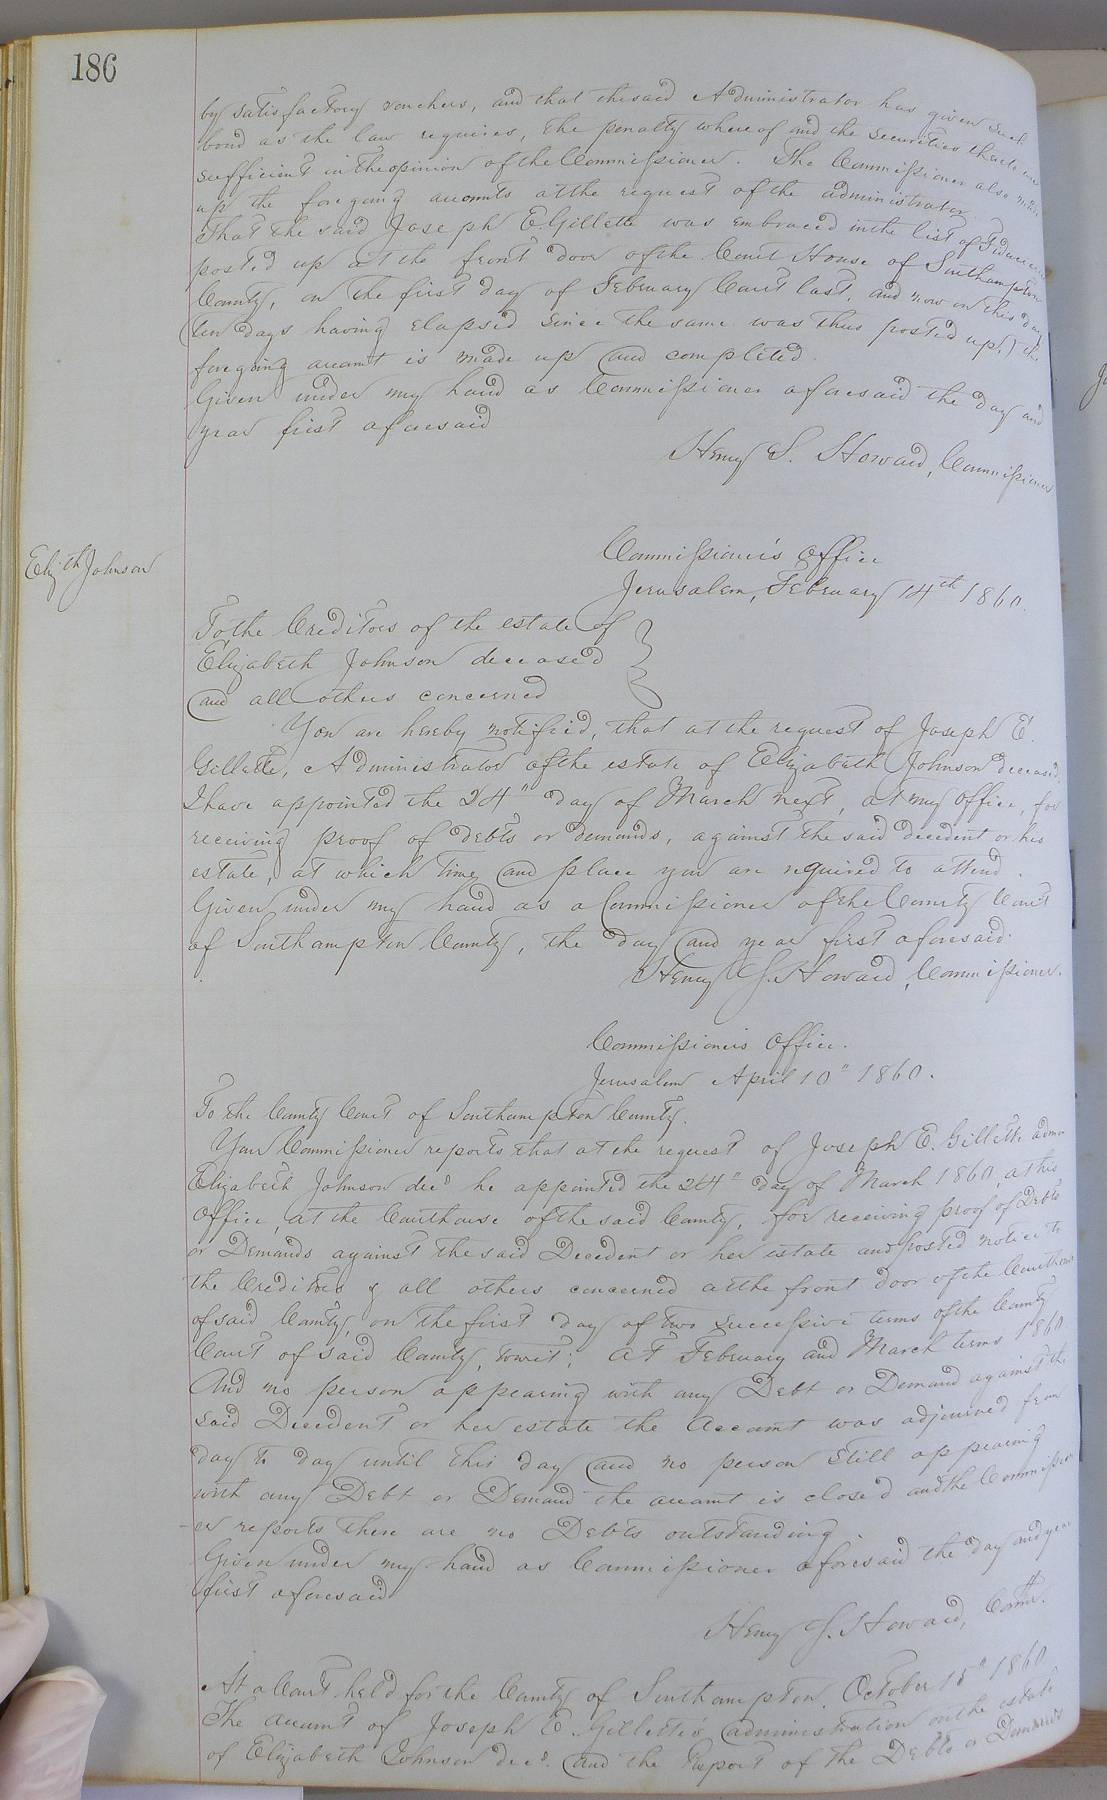 186
by satisfactory vouchers, and that the said Administrator has given such
bond as the law requires, the penalty whereof and the securities therein are
sufficient in the opinion of the Commissioner. The Commissioner also made
up the foregoing accounts at the request of the administrator.
That the said Joseph E. Gillette was embraced in the list of Fiduciaries
posted up at the front door of the Court House of Southampton
County, on the first day of February Court last, and now on this day
(ten days having elapsed since the same was thus posted up,) the
foregoing account is made up and completed.
Given under my hand as Commissioner aforesaid the day and
year first aforesaid
Henry S. Howard, Commissioner
Eliz th Johnson
Commissioner's Office
Jerusalem, February 14th 1860.
To the Creditors of the estate of
Elizabeth Johnson deceased
and all others concerned
You are hereby notified, that at the request of Joseph E.
Gillette, Administrator of the estate of Elizabeth Johnson deceased,
I have appointed the 24" day of March next, at my office, for
receiving proof of debts or demands, against the said decedent or his
estate, at which time and place you are required to attend.
Given under my hand as a Commissioner of the County Court
of Southampton County, the day and year first aforesaid.
Henry S. Howard, Commissioner.
Commissioner's Office.
Jerusalem April 10" 1860.
To the County Court of Southampton County.
Your Commissioner reports that at the request of Joseph E. Gillette admr
Elizabeth Johnson decd he appointed the 24" day of March 1860, at his
Office, at the Courthouse of the said County, for receiving proof of Debts
or Demands against the said Decedent or her estate and posted notice to
the Creditors & all others concerned at the front door of the Courthouse
of said County, on the first day of two successive terms of the County
Court of said County, towit; At February and March terms 1860
And no person appearing with any Debt or Demand against the
said Decedent or her estate the Account was adjourned from
day to day until this day and no person still appearing
with any Debt or Demand the account is closed and the Commission
-er reports there are no Debts outstanding.
Given under my hand as Commissioner aforesaid the day and year
first aforesaid
Henry S. Howard, Comr.
At a Court held for the County of Southampton, October 15" 1860
The account of Joseph E. Gillette's administration on the estate
of Elizabeth Johnson decd. and the Report of the Debts or Demands